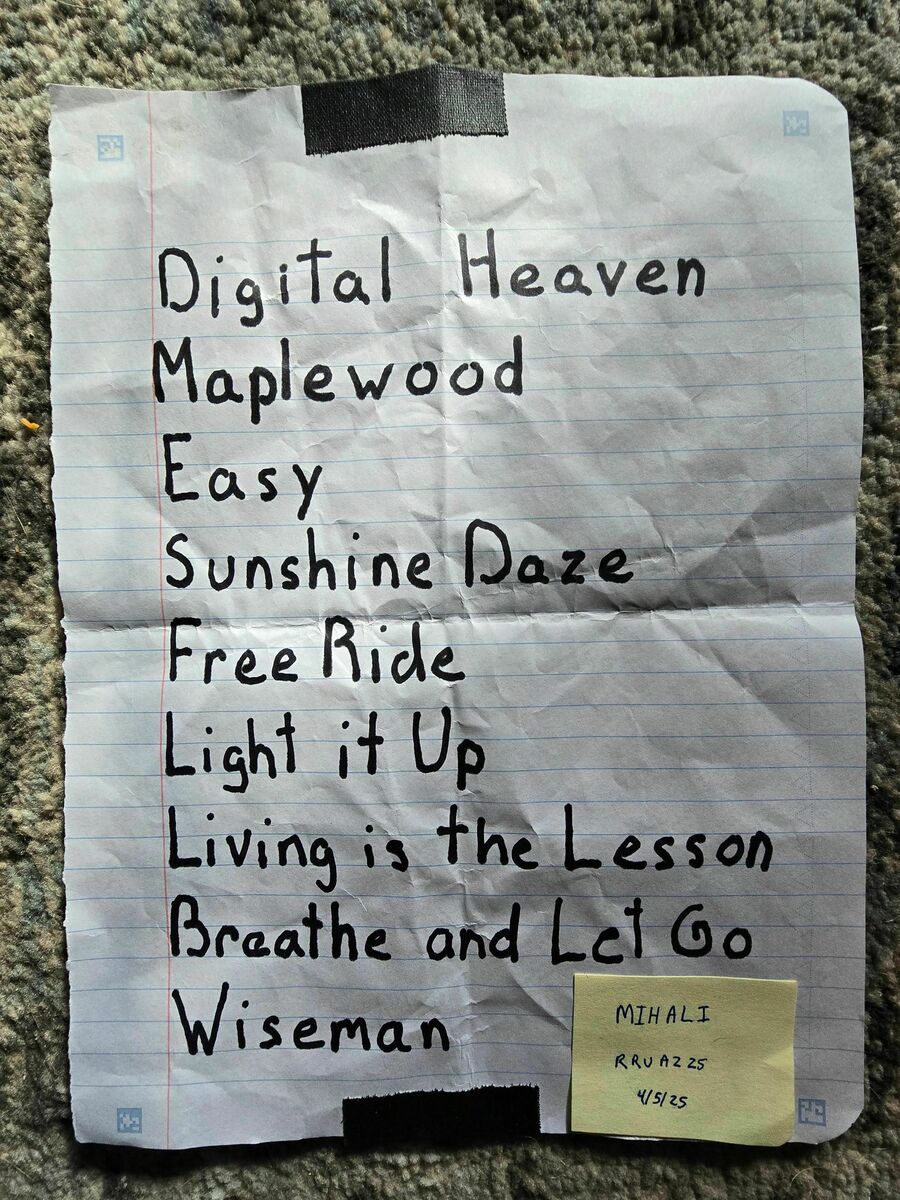 Digital Heaven
Maplewood
Easy
Sunshine Daze
Free Ride
Light it Up
Living is the Lesson
Breathe and Let Go
Wiseman
MIHALI
RRUAZ25
4/5/25